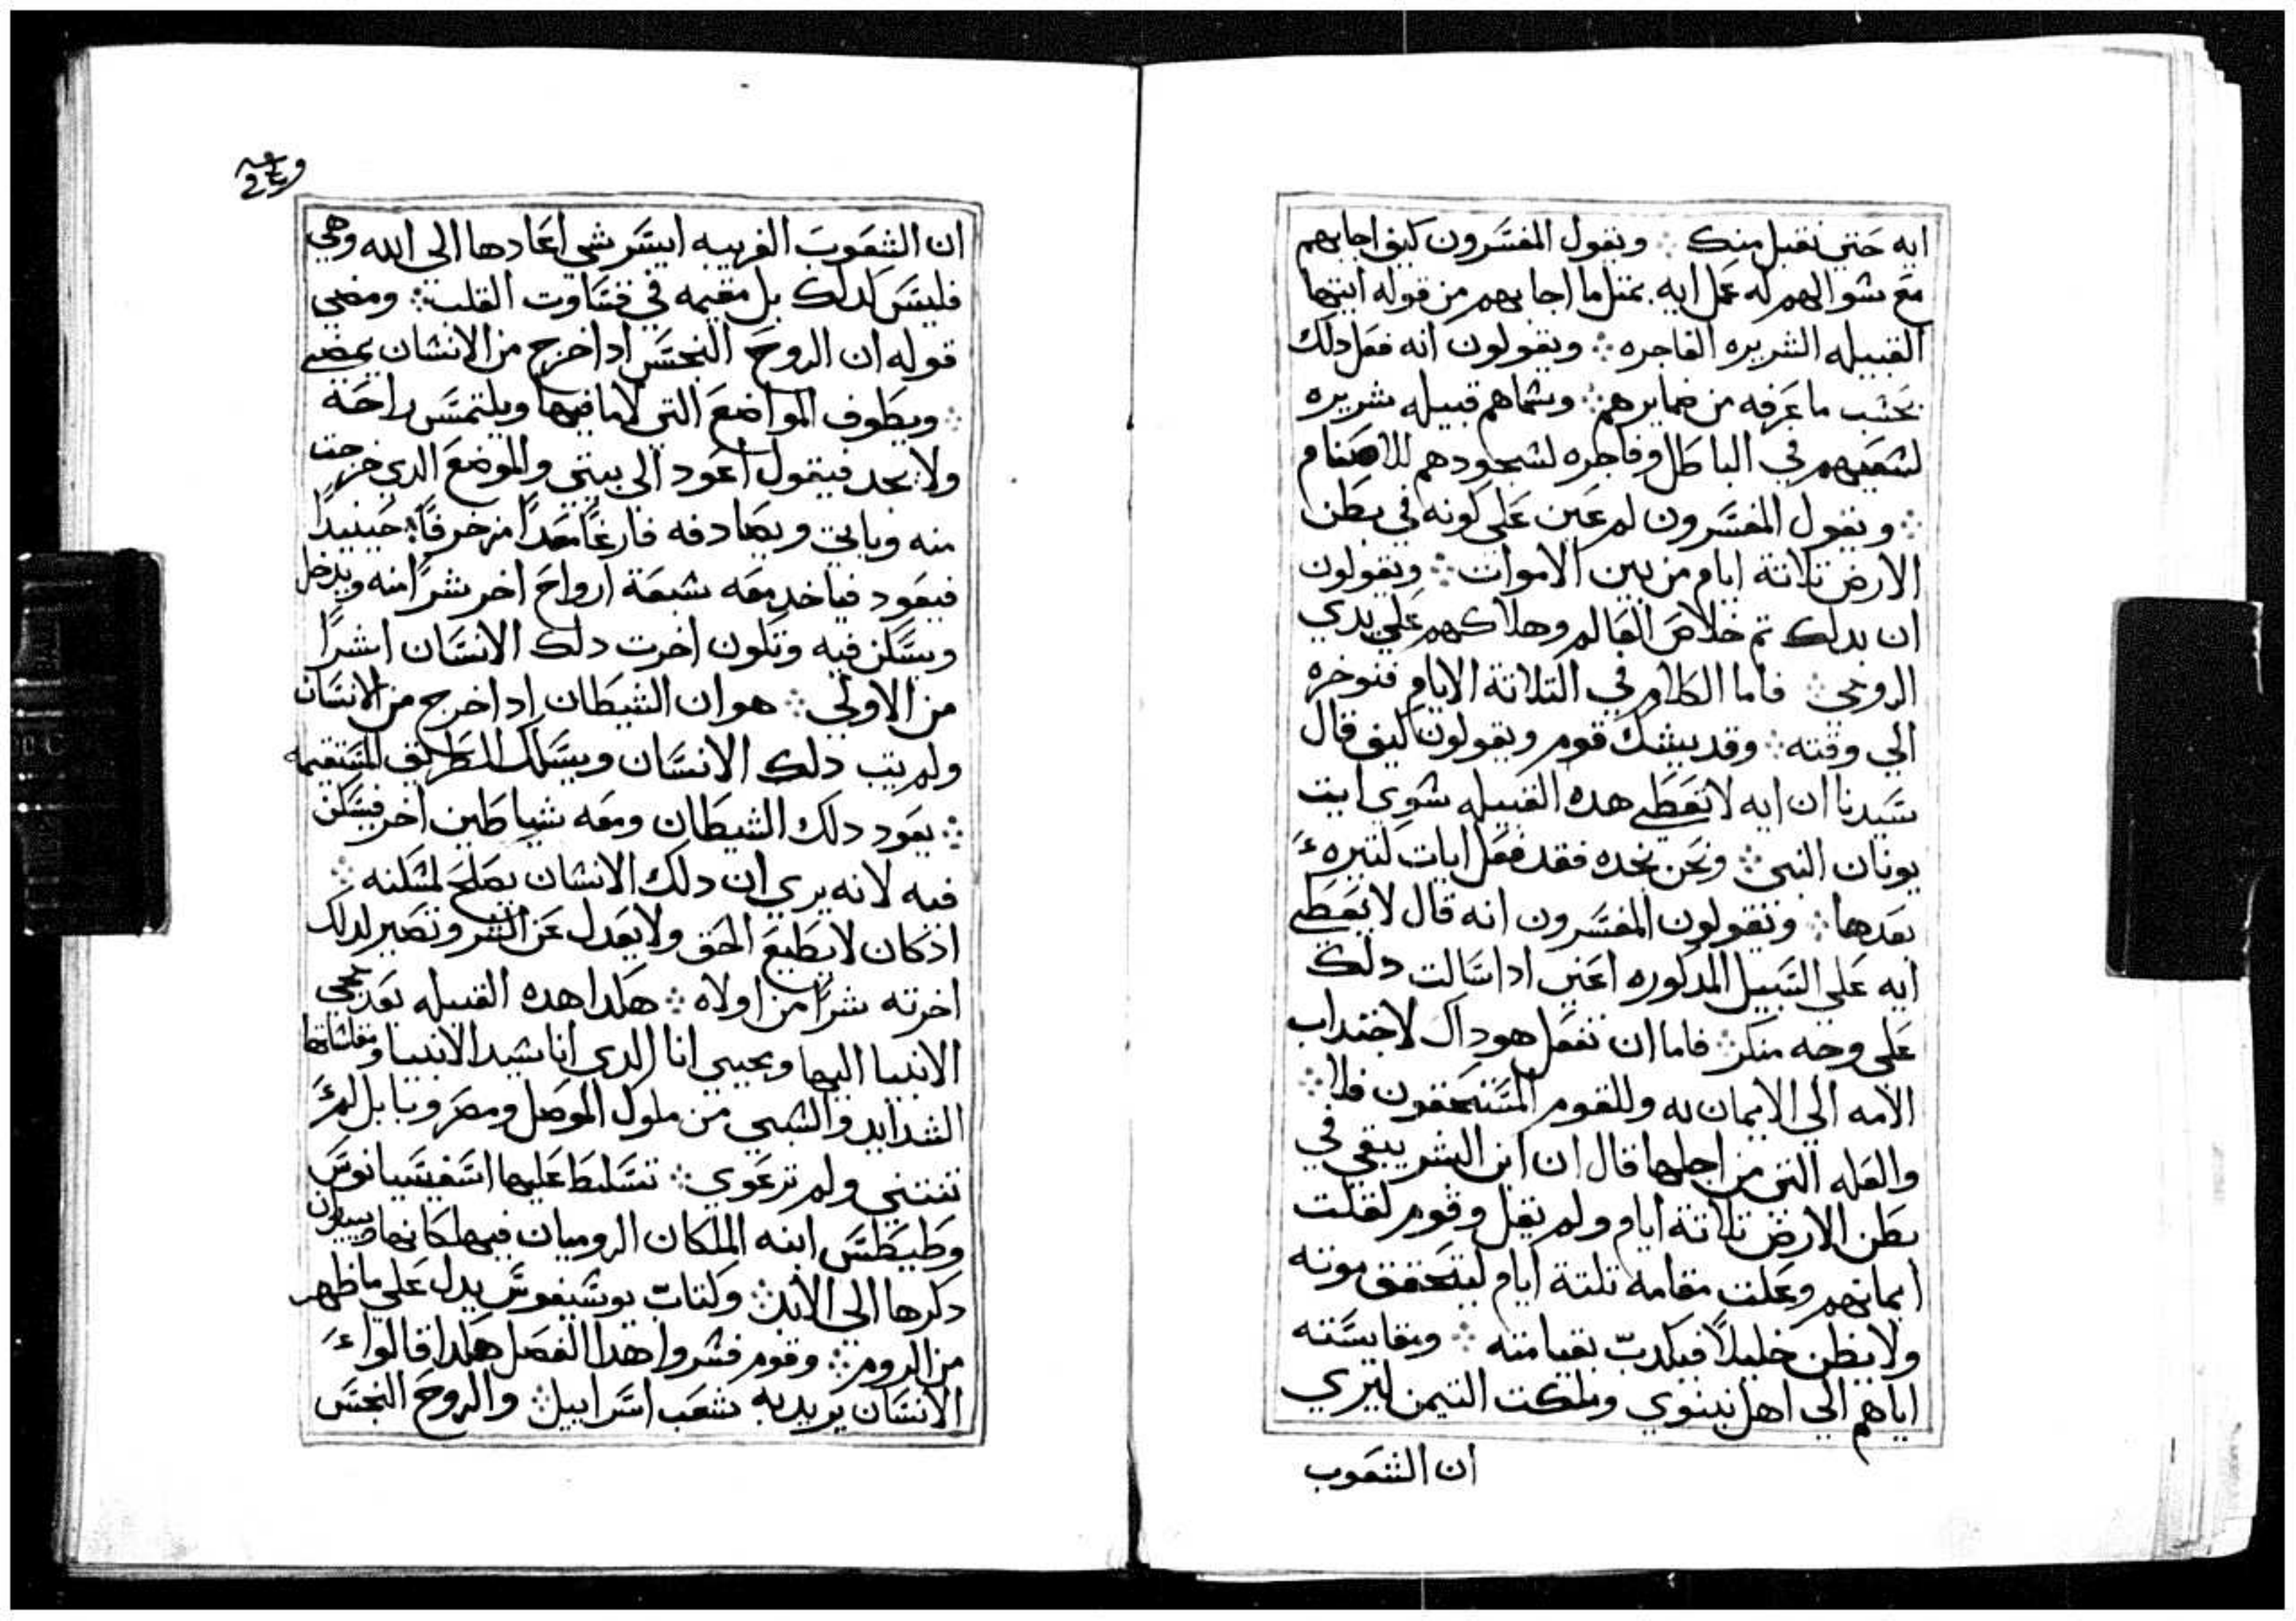 ايه حتي نقبل منك ∴ ويقول المفسرون كيف اجابهم
مع سوالهم له عمل ايه. بمثل ما اجابهم من قوله ايتها
القبيله الشريره الفاجره ∴ ويقولون انه فعل دلك
بحسب ما عرفه من ضمايرهم ∴ وسماهم قبيله شريره
لسعيهم في الباطل وفاجره لسجودهم للاصنام
∴ ويقول المفسرون لم عين علي كونه في بطن
الارض تلاتة ايام من بين الاموات ∴ ويقولون
ان بدلك تم خلاص العالم وهلاكهم علي يدي
الروحي ∴ فاما الكلام في التلاتة الايام فنوخره
الي وقته ∴ وقد يشك قوم ويقولون كيف قال
سيدنا ان ايه لا تعطي هده القبيله سوي ايت
يونان النبي ∴ ونحن نجده فقد فعل ايات كتيره
بعدها ∴ وتقولون المفسرون انه قال لا يعطي
ايه علي السبيل المدكوره اعني ادا سالت دلك
علي وجه منكر ∴ فاما ان تفعل هو داك لاجتداب
الامه الي الايمان به وللقوم المستحقون فلا ∴
والعله التي من اجلها قال ان ابن البشر يبقي في
بطن الارض تلاتة ايام ولم يقل وقوم لقلت
ايمانهم وعلت مقامه تلتة ايام ليتحقق موته
ولا يظن خليلاً فيكدب بقيامته ∴ وبقايسته
اياهم الي اهل نينوي وملكت التيمن ليري
ان الشعوب
ان الشعوب الغريبه ايسر شي اعادها الي الله وهي
فليس كدلك بل مقيمه في قساوت القلب ∴ ومضي
قوله ان الروح النجس ادا خرج من الانسان يمضي
∴ ويطوف المواضع التي لا ما فيها ويلتمس راحة
ولا يجد فيقول اعود الي بيتي والموضع الدي خرجت
منه وياتي ويصادفه فارغاً معداً مزخرفاً ∴ حينيداً
فيعود فياخد معه سبعة ارواح اخر شراً منه ويدخل
ويسكن فيه وتكون اخرت دلك الانسان اشراً
من الاولي ∴ هو ان الشيطان ادا خرج من الانسان
ولم يتب دلك الانسان ويسلك الطريق المستقيمه
∴ يعود دلك الشيطان ومعه شياطين اخر فيسكن
فيه لانه يري ان دلك الانسان يصلح لمسكنه ∴
ادكان لا يطيع الحق ولا يعدل عن الشر وتصير لدلك
اخرته شراً من اولاه ∴ هكدا هده القبيله بعد مجي
الانبيا اليها ويجيي انا الدي انا سيد الانبيا ومقاساتها
الشدايد والسبي من ملوك الموصل ومصر وبابل لم
تنتني ولم ترعوي ∴ تتسلط عليها اسفسيانوس
وطيطس ابنه الملكان الروميان فيهلكانها ويبيدون
دكرها الي الابد ∴ وكتاب يوسيفوس يدل علي ما ظهر
من الروم ∴ وقوم فسروا هدا الفصل هكدا قالوا
الانسان يريد به شعب اسراييل ∴ والروح النجس